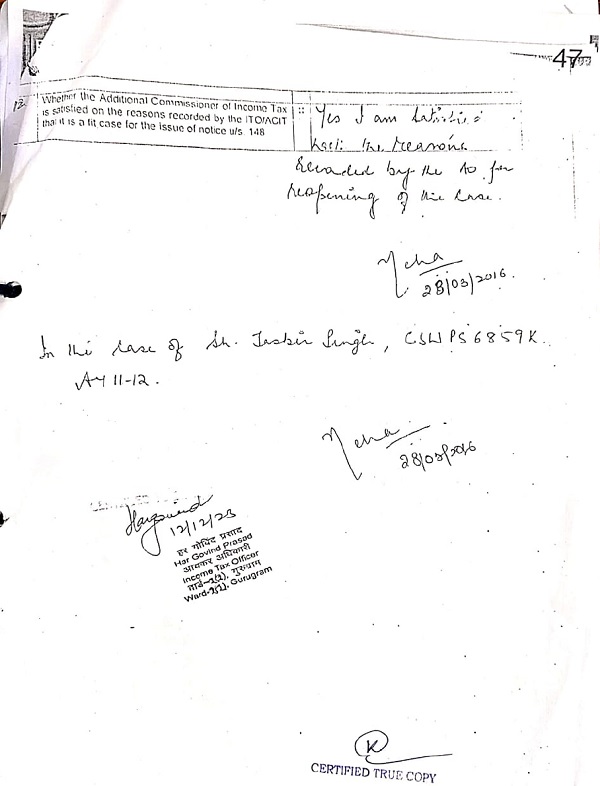 47
12
Whether the Additional Commissioner of Income Tax
is satisfied on the reasons recorded by the ITO/ACIT
that it is a fit case for the issue of notice u/s. 148
:: Yes I am
the reasons
recorded by the AO for
reopening of the case.
Neha
28/03/2016.
In the case of Sh. Jasbir Singh, CSWPS6859K.
AY 11-12.
Neha
28/03/2016
Hargovind
12/12/23
हर गोविंद प्रसाद
Har Govind Prasad
आयकर अधिकारी
Income Tax Officer
गुरुग्राम
Gurugram
K
CERTIFIED TRUE COPY